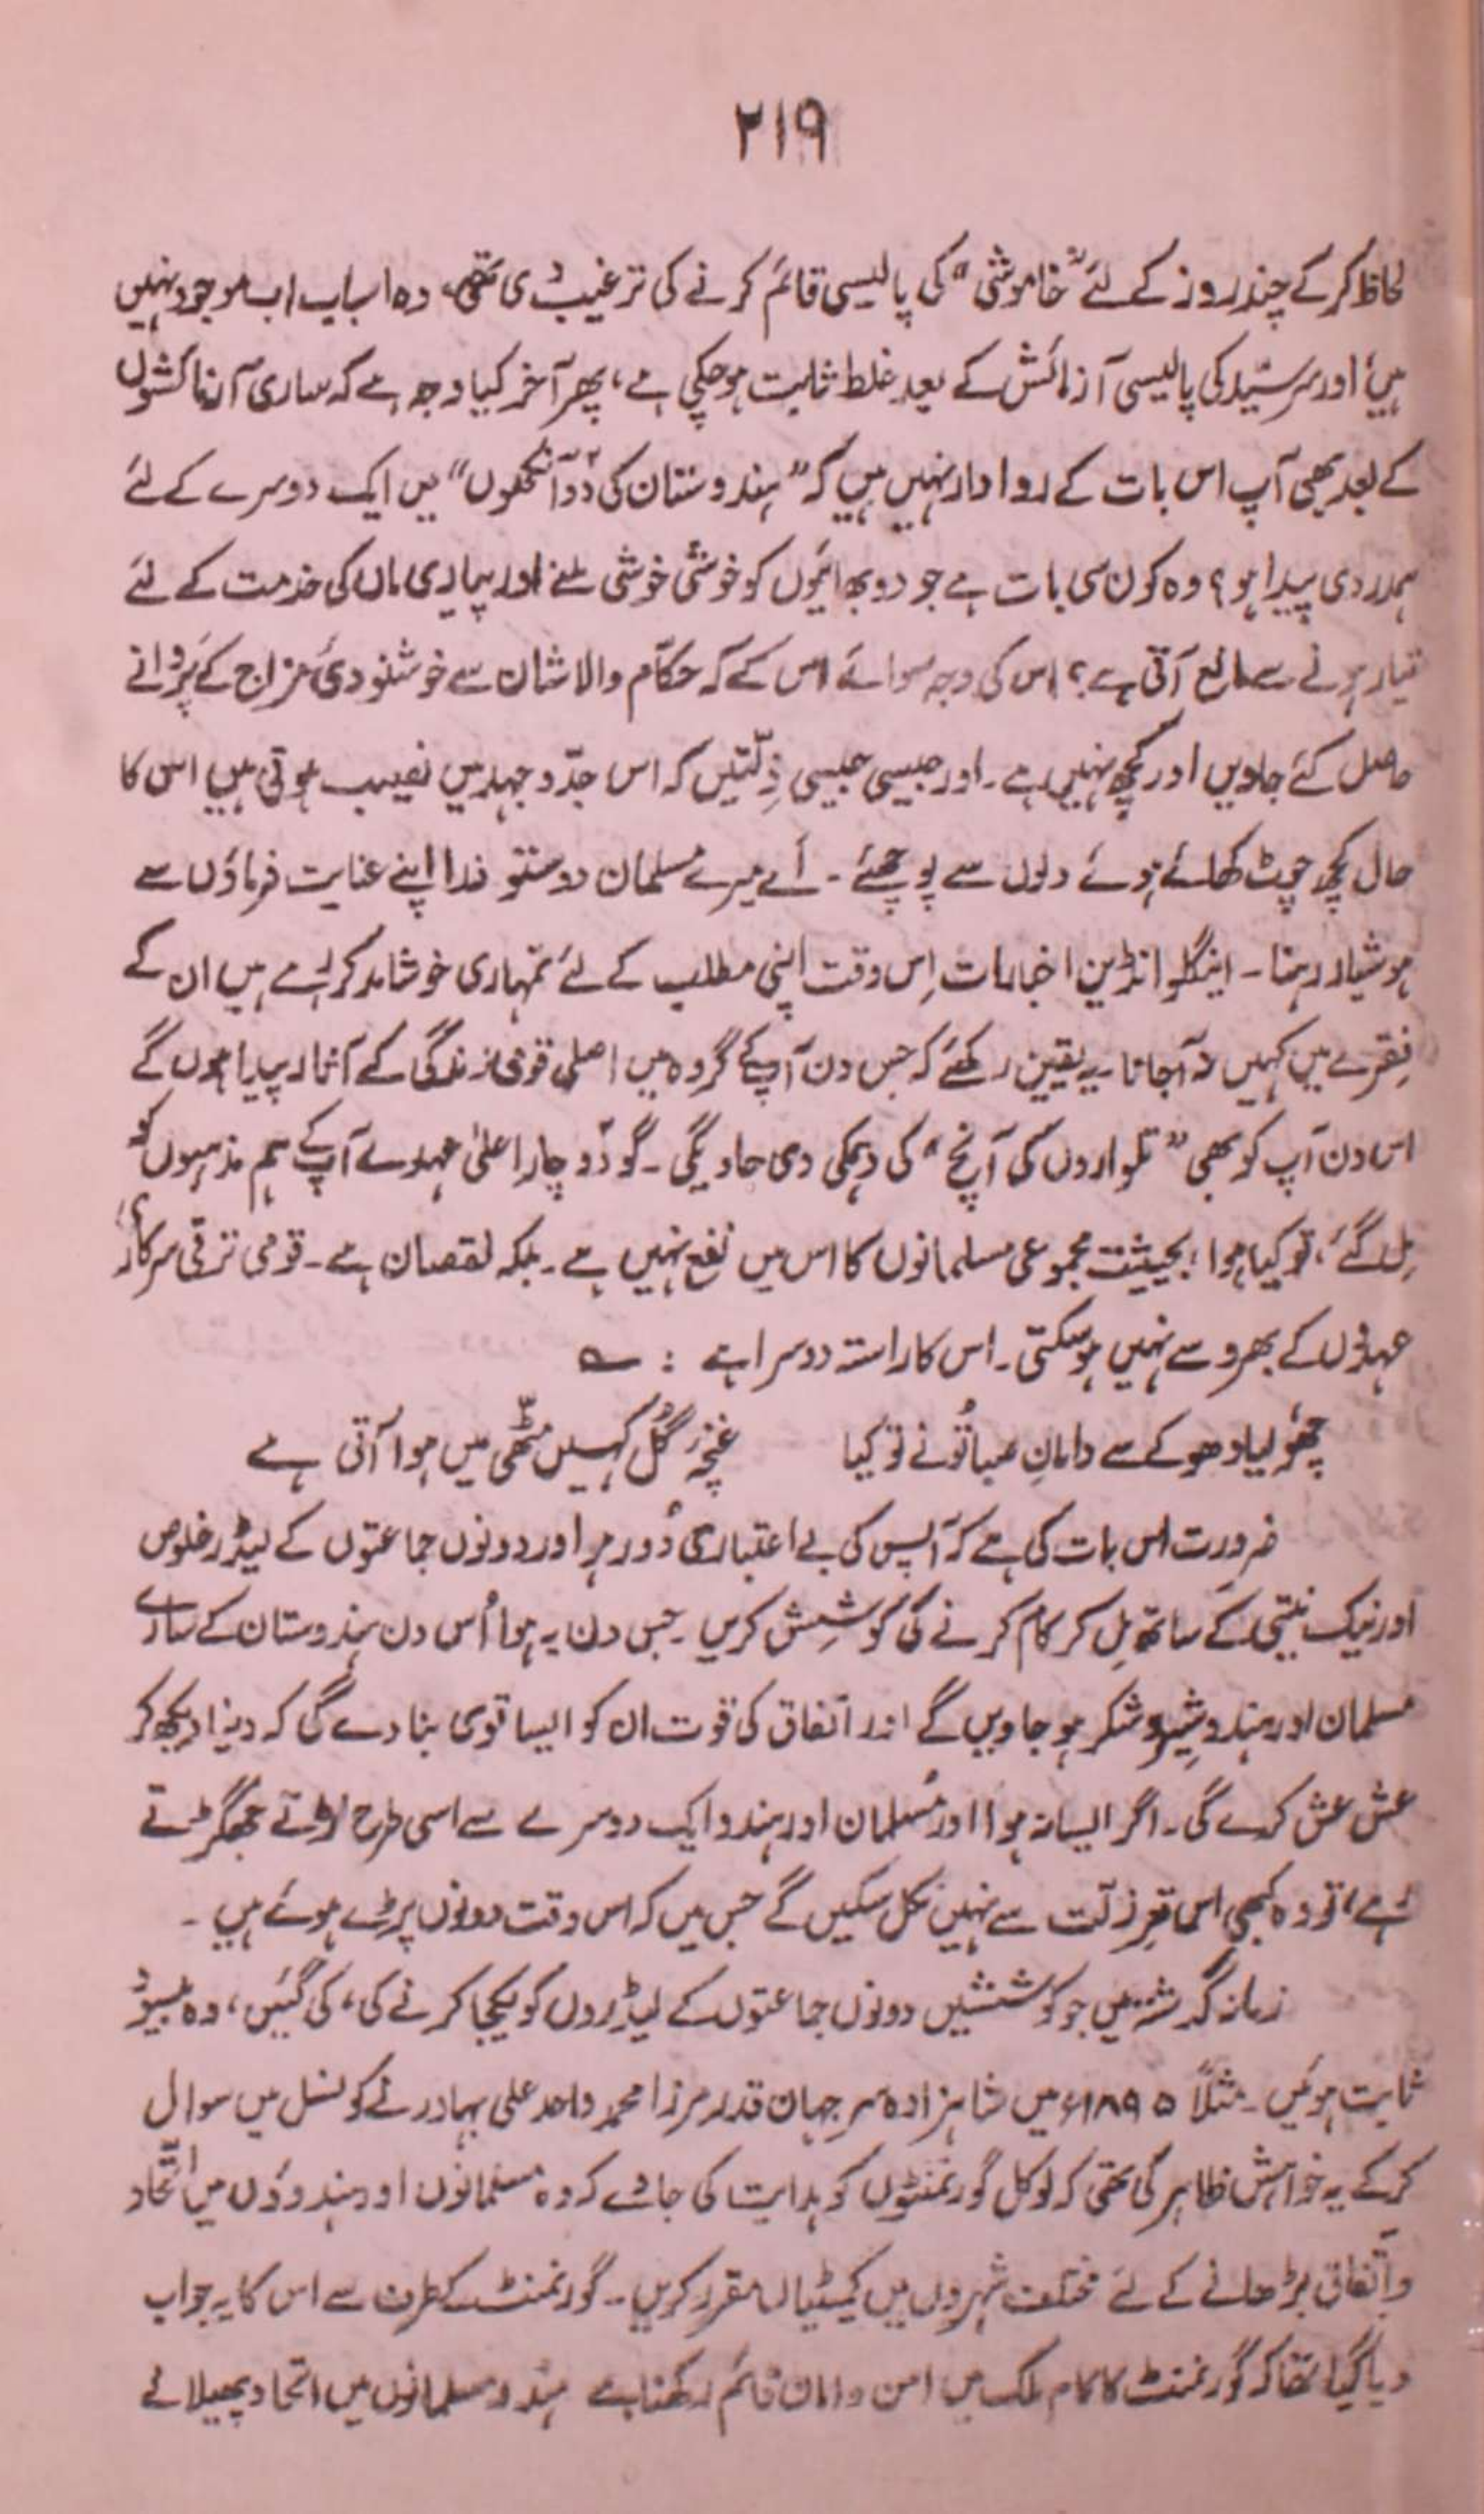 ۲۱۹
لحاظ کرکے چند روز کے لئے "خاموشی" کی پالیسی قائم کرنے کی ترغیب دی تھی، وہ اسباب اب موجود نہیں
ہیں اور سرسیّد کی پالیسی آزمائش کے بعد غلط ثابت ہوچکی ہے، پھر آخر کیا وجہ ہے کہ ساری آزمائشوں
کے بعد بھی آپ اس بات کے روادار نہیں ہیں کہ "ہندوستان کی دو آنکھوں" میں ایک دوسرے کے لئے
ہمدردی پیدا ہو؟ وہ کون سی بات ہے جو دو بھائیوں کو خوشی خوشی ملنے اور پیاری ماں کی خدمت کے لئے
تیار ہونے سے مانع آتی ہے؟ اس کی وجہ سوائے اس کے کہ حکّام والا شان سے خوشنودیٔ مزاج کے پروانے
حاصل کئے جاویں اور کچھ نہیں ہے۔ اور جیسی جیسی ذِلّتیں کہ اس جدّوجہد میں نصیب ہوتی ہیں اس کا
حال کچھ چوٹ کھائے ہوئے دلوں سے پوچھئے۔ اَے میرے مسلمان دوستو ذرا اپنے عنایت فرماؤں سے
ہوشیار رہنا۔ اینگلو انڈین اخبارات اِس وقت اپنی مطلب کے لئے تمہاری خوشامد کر رہے ہیں ان کے
فِقرے میں کہیں نہ آجانا۔ یہ یقین رکھئے کہ جس دن آپ کے گروہ میں اصلی قومی زندگی کے آثار پیدا ہوں گے
اس دن آپ کو بھی "تلواروں کی آنچ" کی دہمکی دی جاویگی۔ گو دو چار اعلیٰ عہدے آپ کے ہم مذہبوں کو
مِل گئے، تو کیا ہوا؛ بحیثیت مجموعی مسلمانوں کا اس میں نفع نہیں ہے۔ بلکہ نقصان ہے۔ قومی ترقی سرکاری
عہدوں کے بھروسے نہیں ہوسکتی۔ اس کا راستہ دوسرا ہے : ؎
چھُو لیا دھوکے سے دامانِ صبا تُونے تو کیا غنچۂ گُل کہیں مٹّھی میں ہوا آتی ہے
ضرورت اس بات کی ہے کہ آپس کی بے اعتباری دُور ہو اور دونوں جماعتوں کے لیڈر خلوص
اور نیک نیتی کے ساتھ مِل کر کام کرنے کی کوشِش کریں۔ جس دن یہ ہوا اُس دن ہندوستان کے سارے
مسلمان اور ہندو شِیر و شکر ہوجاویں گے اور اتفاق کی قوت ان کو ایسا قوی بنا دے گی کہ دنیا دیکھ کر
عش عش کرے گی۔ اگر ایسا نہ ہوا اور مُسلمان اور ہندو ایک دوسرے سے اسی طرح لڑتے جھگڑتے
رہے، تو وہ کبھی اس قعرِ ذلّت سے نہیں نکل سکیں گے جس میں کہ اس وقت دونوں پڑے ہوئے ہیں۔
زمانہ گذشتہ میں جو کوششیں دونوں جماعتوں کے لیڈروں کو یکجا کرنے کی، کی گئیں، وہ بیسود
ثابت ہوئیں۔ مثلاً ۱۸۹۵ء میں شاہزادہ سر جہان قدر مرزا محمد واحد علی بہادر نے کونسل میں سوال
کرکے یہ خواہش ظاہر کی تھی کہ لوکل گورنمنٹوں کو ہدایت کی جاوے کہ وہ مسلمانوں اور ہندوؤں میں اتّحاد
و اتّفاق بڑھانے کے لئے مختلف شہروں میں کمیٹیاں مقرر کریں۔ گورنمنٹ کیطرف سے اس کا یہ جواب
دیا گیا تھا کہ گورنمنٹ کا کام ملک میں امن و امان قائم رکھنا ہے ہندو مسلمانوں میں اتحاد پھیلانے